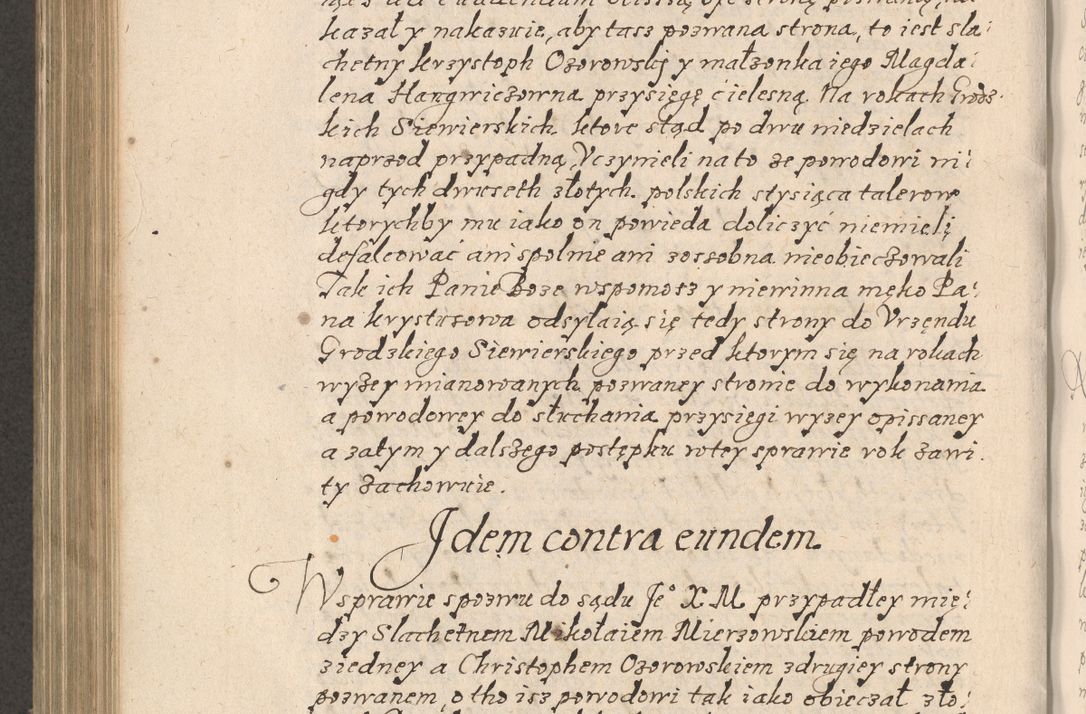 kazał y nakazuie, aby tasz pozwana strona, to iest sla:
chetny krzystoph Ozorowskj y małzonka iego Magda:
lena Hangwiczowna przysięgę cielesną. Na rokach Grodz:
kich Siewierskich ktore stąd po dwu niedzielach
naprzod przypadną, Vczynieli na to ze powodowi ni:
gdy tych dwuseth złotych polskich stysiąca talerow
ktorychby mu iako on powieda doliczyć niemielj
defalcować ani spolnie ani zossobna nieobieczowali
Tak ich Panie Boze wspomosz y niewinna męko Pa:
na krystusowa odsyłaią się tedy strony do Vrzęndu
Grodzkiego Siewierskiego przed ktorym się na rokach
wyzey mianowanych pozwaney stronie do wykonania
a powodowey do słuchania przysięgi wyzey opissaney
a zatym y dalszego postępku wtey sprawie rok zawi:
ty zachowuie.
Jdem contra eundem
W sprawie spozwu do sądu Je° X M przypadłey mię:
dzy Slachetnem Mikołaiem Mierzowskiem powodem
ziedney a Christophem Ozorowskiem zdrugiey strony
pozwanem, o tho isz powodowi tak iako obieczał zło: